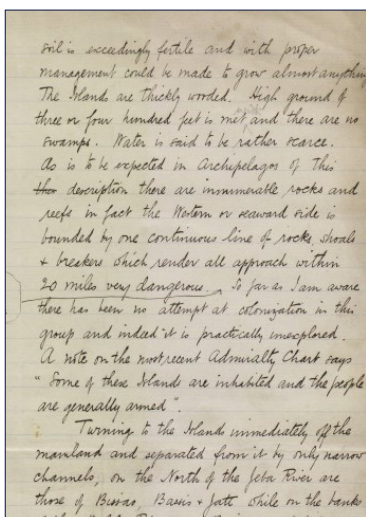 soil is exceedingly fertile and with proper
management could be made to grow almost anything
The Islands are thickly wooded. High ground of
three or four hundred feet is met and there are no
swamps. Water is said to be rather scarce.
As is to be expected in Archipelagos of This
this description there are innumerable rocks and
reefs in fact the Western or seaward side is
bounded by one continuous line of rocks, shoals
& breakers which render all approach within
20 miles very dangerous. So far as I am aware
there has been no attempt at colonization in this
group and indeed it is practically unexplored.
A note on the most recent Admiralty Chart says
"Some of these Islands are inhabited and the people
are generally armed".
Turning to the Islands immediately off the
mainland and separated from it by only narrow
channels, on the North of the Jeba River are
those of Bissao, Bassis & Jatt while on the banks